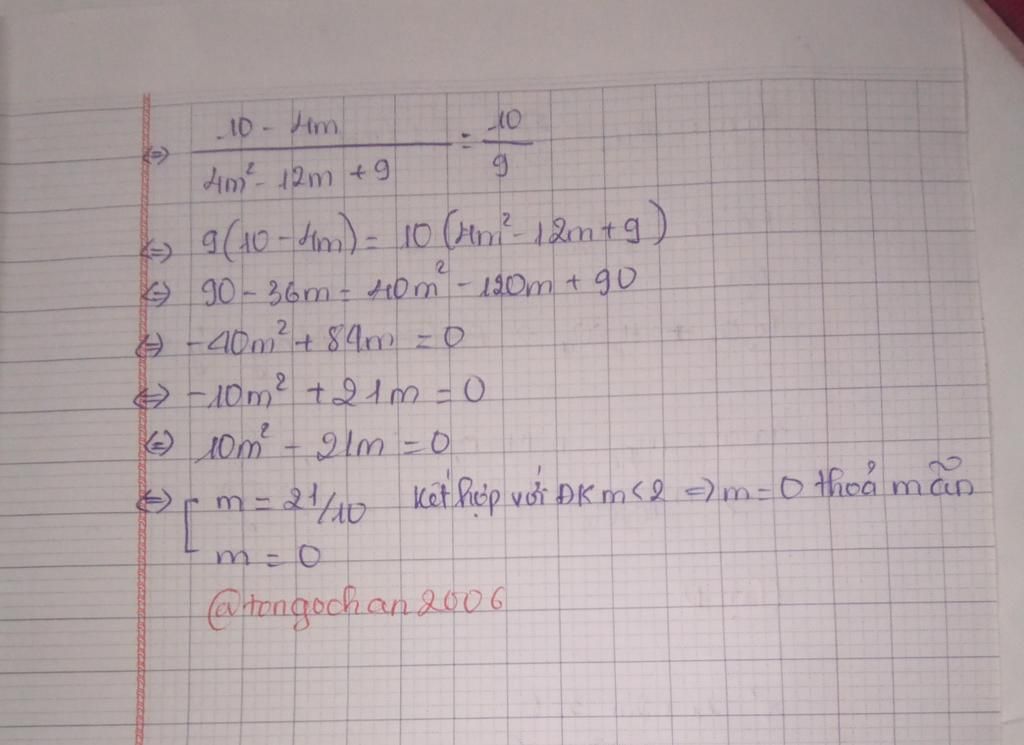 ⇔ (10 - 4m)/(4m² - 12m + 9) = 10/9
⇔ 9(10 - 4m) = 10(4m² - 12m + 9)
⇔ 90 - 36m = 40m² - 120m + 90
⇔ -40m² + 84m = 0
⇔ -10m² + 21m = 0
⇔ 10m² - 21m = 0
⇔ [ m = 21/10 Kết hợp với ĐK m < 2 => m = 0 thoả mãn
m = 0
@tongochan2006